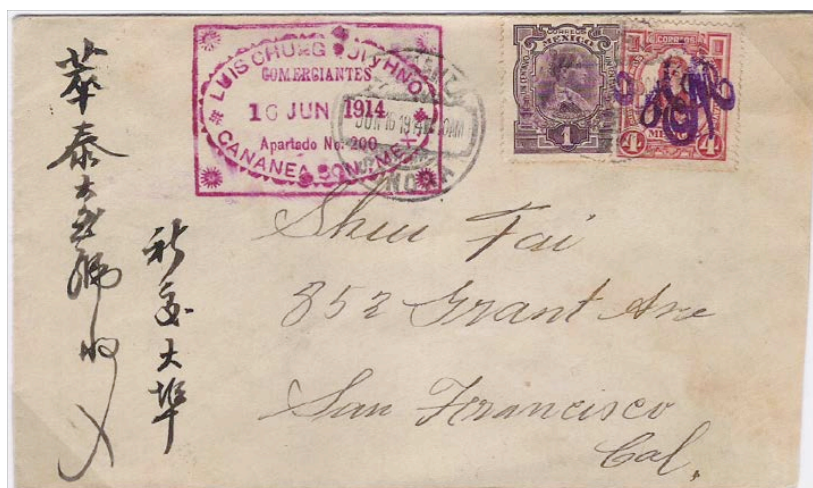 LUIS CHUNG Y HNO
COMERCIANTES
16 JUN 1914
Apartado No. 200
CANANEA SON. MEX.
CORREOS
MEXICO
1
CORREOS
4
Shui Tai
852 Grant Ave
San Francisco
Cal.
泰大寶號收入
大埠